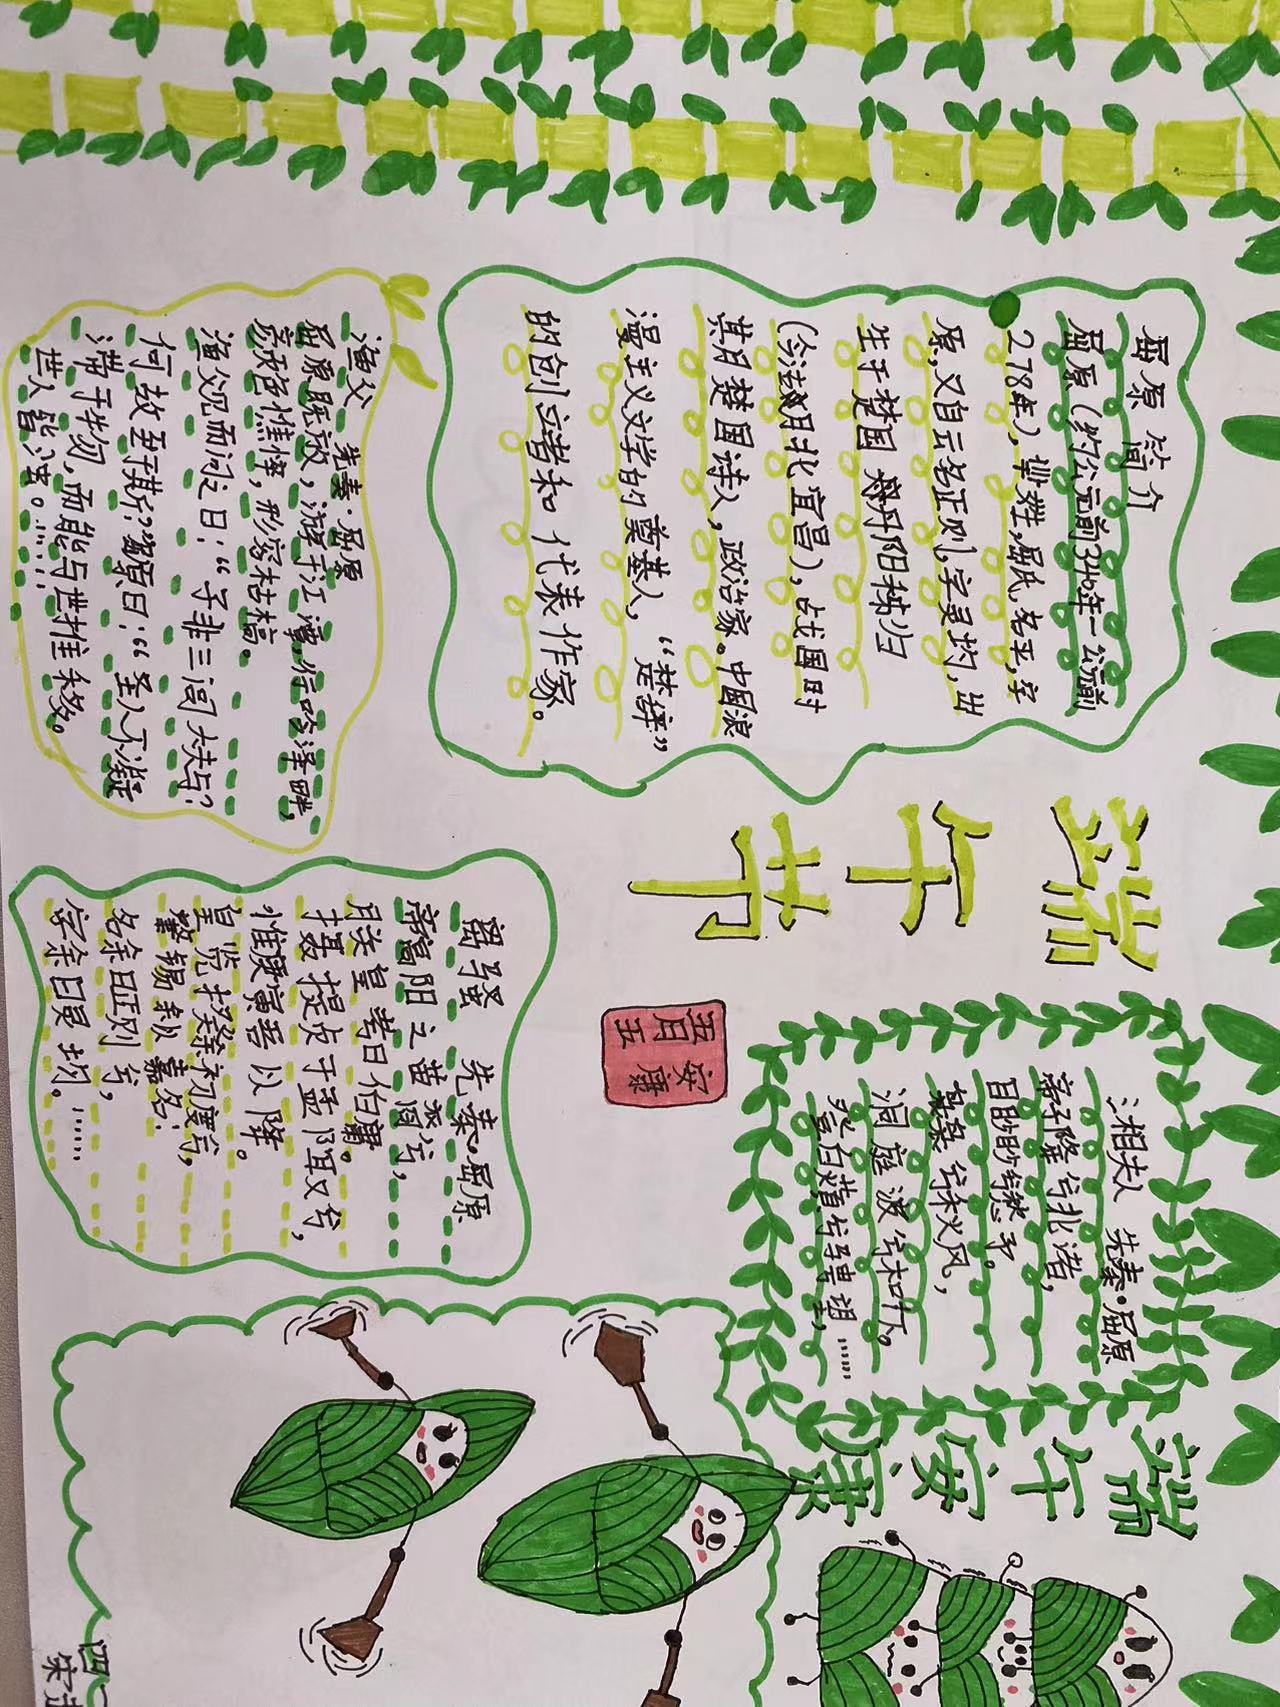 端午节
屈原 简介
屈原（约公元前340年—公元前
278年），芈姓，屈氏，名平，字
原，又自云名正则，字灵均，出
生于楚国 丹阳秭归
（今湖北宜昌），战国时
期楚国诗人，政治家。中国浪
漫主义文学的奠基人，“楚辞”
的创立者和代表作家。
渔父 先秦·屈原
屈原既放，游于江潭，行吟泽畔，
颜色憔悴，形容枯槁。
渔父见而问之曰：“子非三闾大夫与？
何故至于斯？”屈原曰：“圣人不凝
滞于物，而能与世推移。
世人皆浊。……
五月五
安康
湘夫人 先秦·屈原
帝子降兮北渚，
目眇眇兮愁予。
袅袅兮秋风，
洞庭波兮木叶下。
登白薠兮骋望，……
离骚 先秦·屈原
帝高阳之苗裔兮，
朕皇考曰伯庸。
摄提贞于孟陬兮，
惟庚寅吾以降。
皇览揆余初度兮，
肇锡余以嘉名：
名余曰正则兮，
字余曰灵均。……
端午安康
四
宋